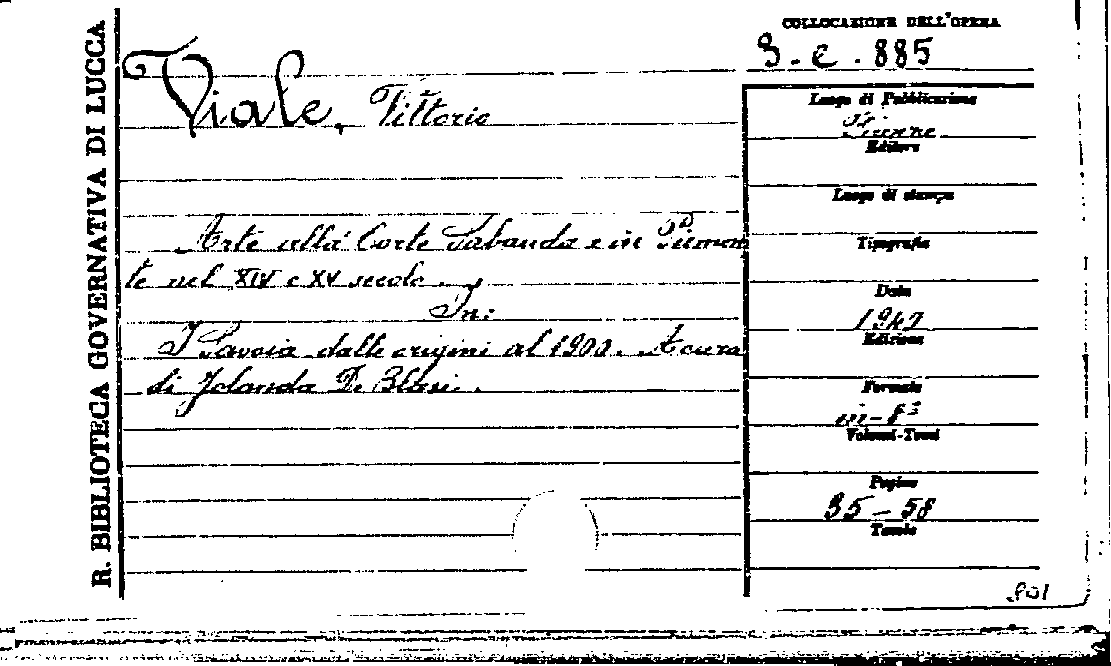 R. BIBLIOTECA GOVERNATIVA DI LUCCA
COLLOCAZIONE DELL'OPERA
3. C. 885
Viale, Vittorio
Arte alla Corte Sabauda e in Piemon
te nel XIV e XV secolo.
In:
I Savoia dalle origini al 1900. A cura
di Jolanda De Blasi.
Luogo di Pubblicazione
Firenze
Editore
Luogo di stampa
Tipografia
Data
1940
Edizione
Formato
in-8°
Volumi-Tomi
Pagine
35-58
Tavole